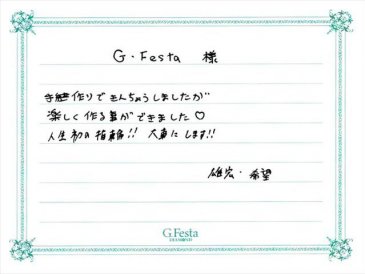 G・Festa 様
手作りできんちょうしましたが
楽しく作る事ができました♡
人生初の指輪!! 大事にします!!
雄宏・希望
G.Festa
DIAMOND